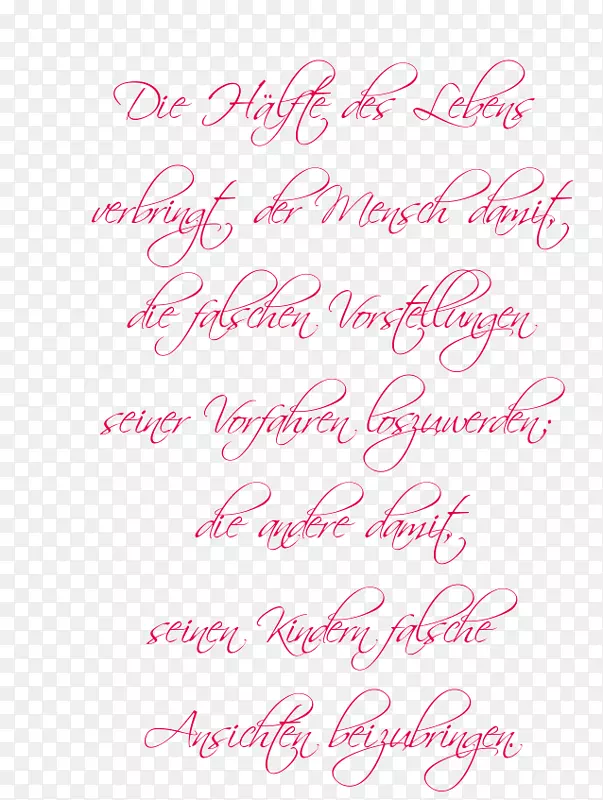 Die Hälfte des Lebens
verbringt der Mensch damit,
die falschen Vorstellungen
seiner Vorfahren loszuwerden;
die andere damit,
seinen Kindern falsche
Ansichten beizubringen.